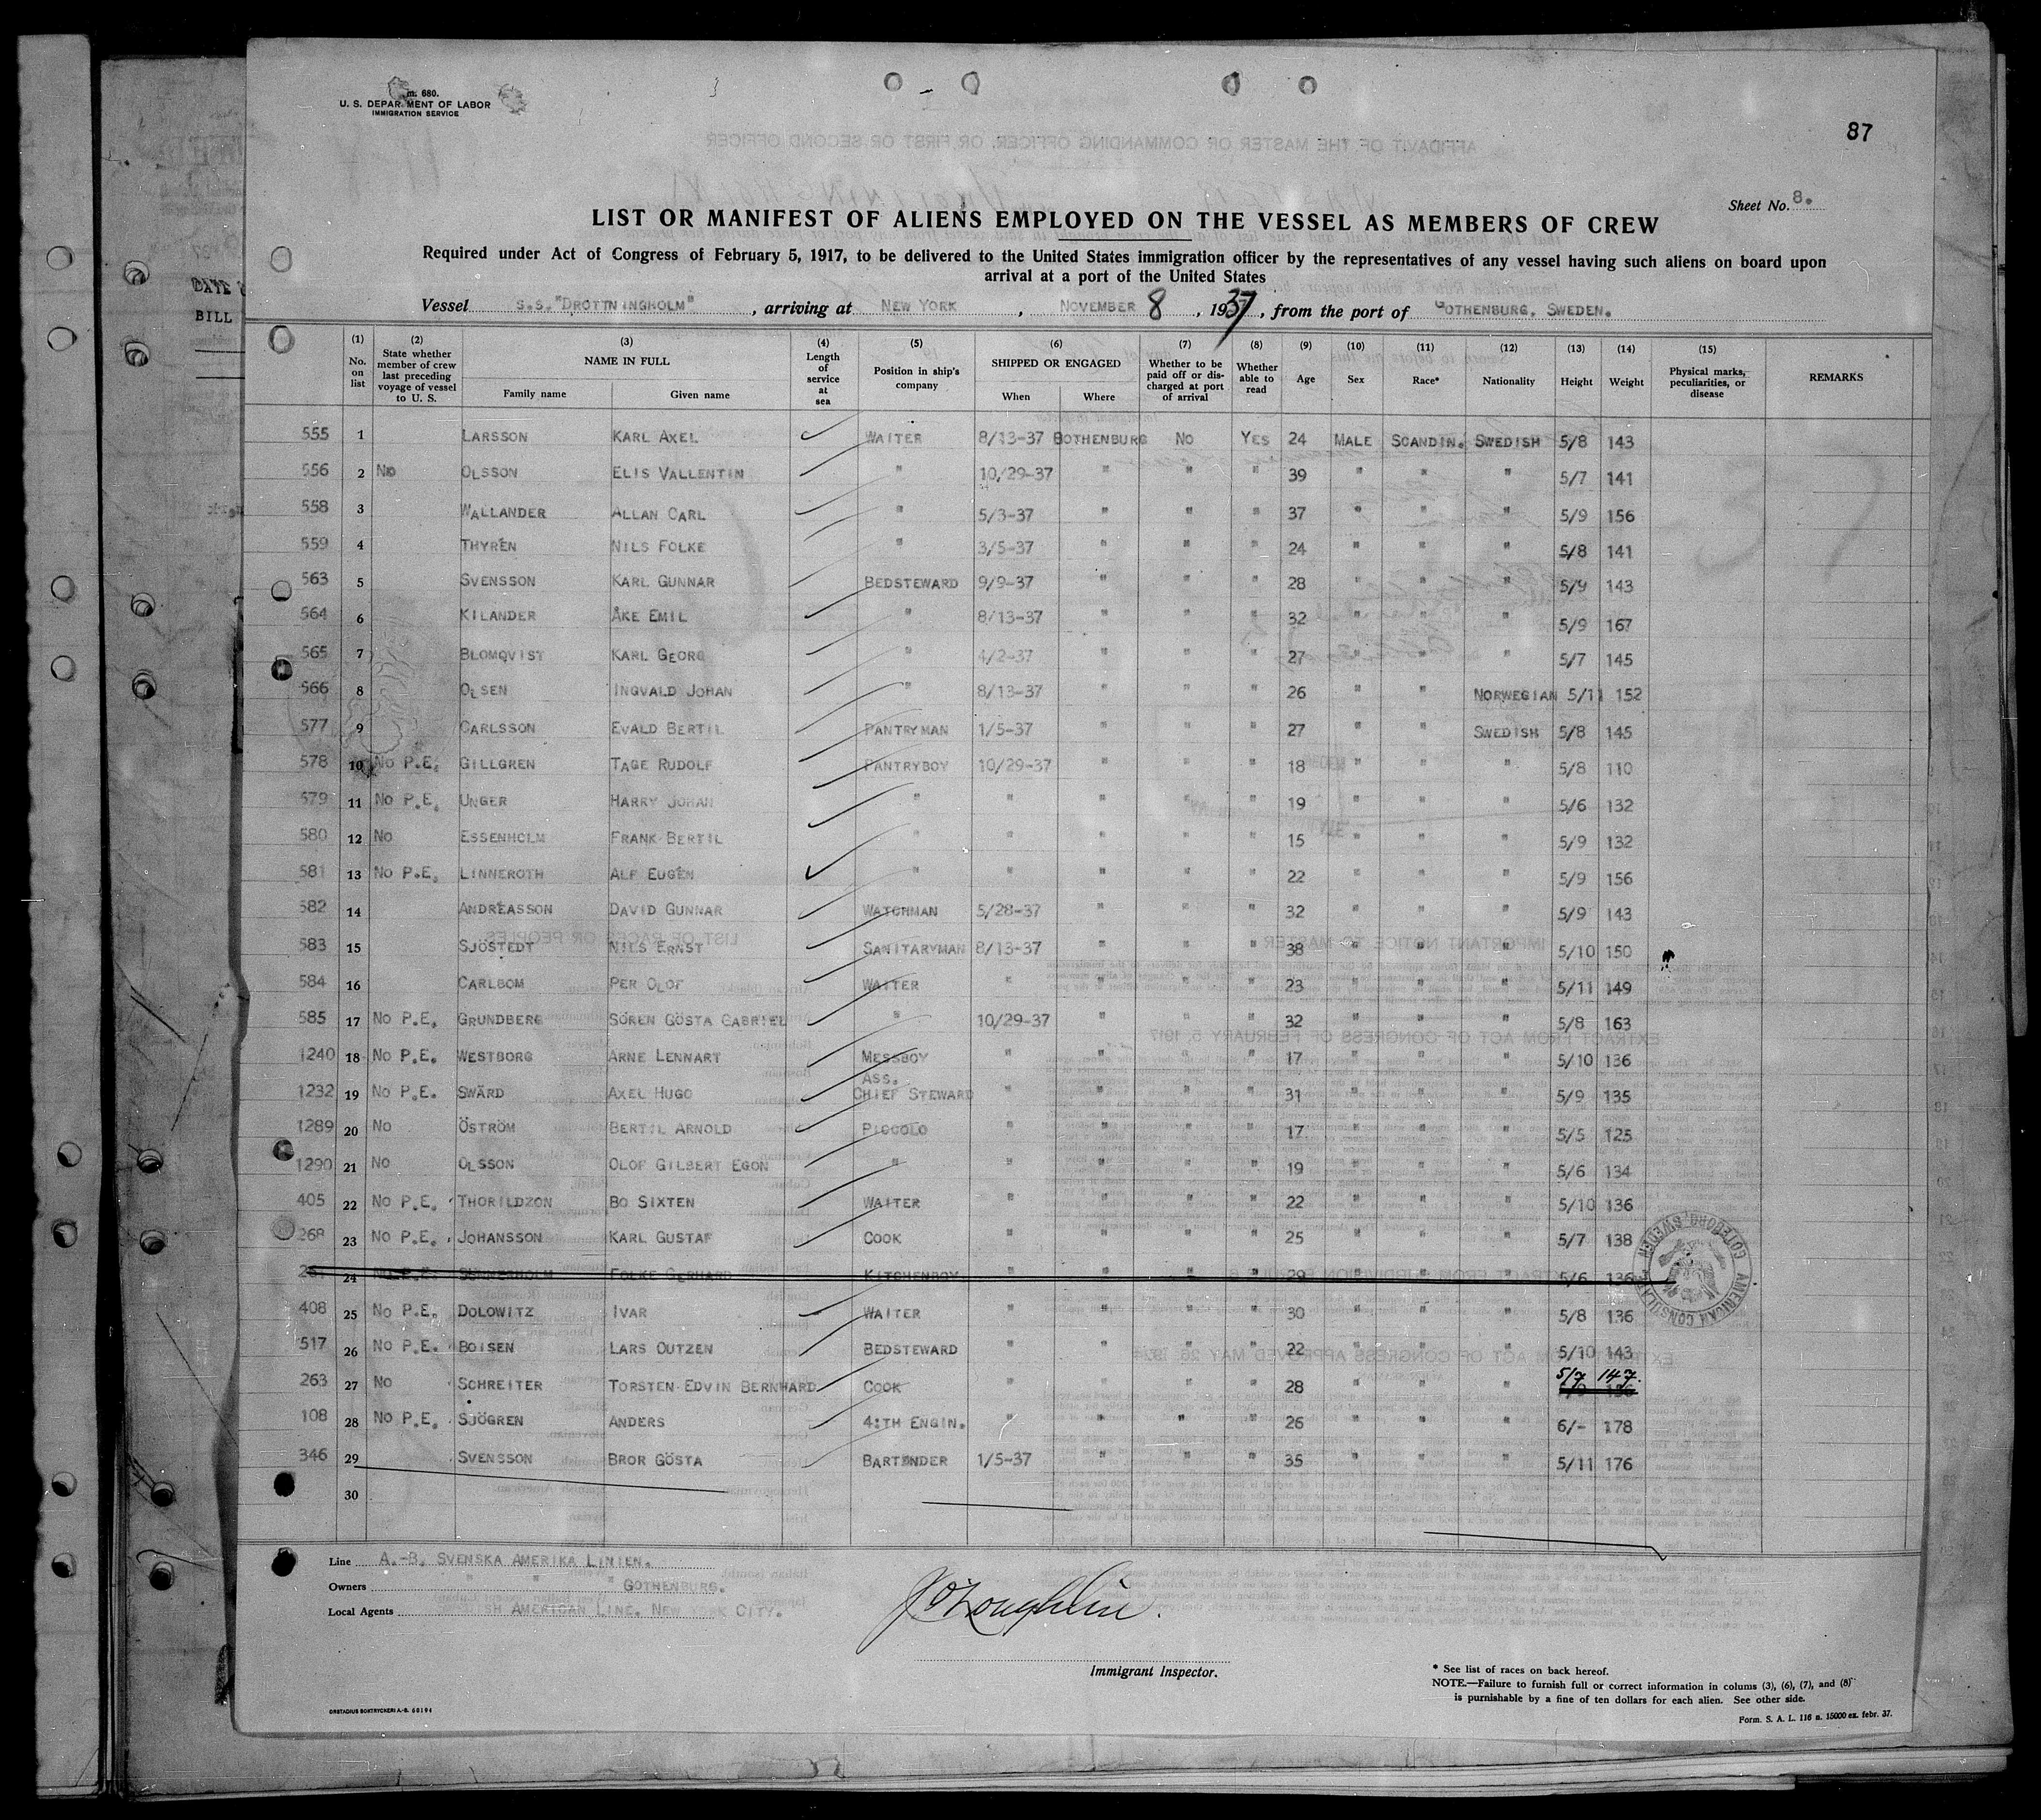 m. 680.
U. S. DEPAR MENT OF LABOR
IMMIGRATION SERVICE
87
Sheet No. 8.
LIST OR MANIFEST OF ALIENS EMPLOYED ON THE VESSEL AS MEMBERS OF CREW
Required under Act of Congress of February 5, 1917, to be delivered to the United States immigration officer by the representatives of any vessel having such aliens on board upon
arrival at a port of the United States
Vessel S.S. "DROTTNINGHOLM", arriving at NEW YORK, NOVEMBER 8, 1937, from the port of GOTHENBURG, SWEDEN.
(1) No. on list (2) State whether member of crew last preceding voyage of vessel to U. S. (3) NAME IN FULL Family name Given name (4) Length of service at sea (5) Position in ship's company (6) SHIPPED OR ENGAGED When Where (7) Whether to be paid off or discharged at port of arrival (8) Whether able to read (9) Age (10) Sex (11) Race* (12) Nationality (13) Height (14) Weight (15) Physical marks, peculiarities, or disease REMARKS
555 1 LARSSON KARL AXEL WAITER 8/13-37 BOTHENBURG NO YES 24 MALE SCANDIN. SWEDISH 5/8 143
556 2 NO OLSSON ELIS VALLENTIN " 10/29-37 " " " 39 " " " 5/7 141
558 3 WALLANDER ALLAN CARL " 5/3-37 " " " 37 " " " 5/9 156
559 4 THYRÉN NILS FOLKE " 3/5-37 " " " 24 " " " 5/8 141
563 5 SVENSSON KARL GUNNAR BEDSTEWARD 9/9-37 " " " 28 " " " 5/9 143
564 6 KILANDER ÅKE EMIL " 8/13-37 " " " 32 " " " 5/9 167
565 7 BLOMQVIST KARL GEORG " 4/2-37 " " " 27 " " " 5/7 145
566 8 OLSEN INGVALD JOHAN " 8/13-37 " " " 26 " " NORWEGIAN 5/11 152
577 9 CARLSSON EVALD BERTIL PANTRYMAN 1/5-37 " " " 27 " " SWEDISH 5/8 145
578 10 NO P.E. GILLGREN TAGE RUDOLF PANTRYBOY 10/29-37 " " " 18 " " " 5/8 110
579 11 NO P.E. UNGER HARRY JOHAN " " " " " 19 " " " 5/6 132
580 12 NO ESSENHOLM FRANK BERTIL " " " " " 15 " " " 5/9 132
581 13 NO P.E. LINNEROTH ALF EUGÉN " " " " " 22 " " " 5/9 156
582 14 ANDRÉASSON DAVID GUNNAR WATCHMAN 5/28-37 " " " 32 " " " 5/9 143
583 15 SJÖSTEDT NILS ERNST SANITARYMAN 8/13-37 " " " 38 " " " 5/10 150
584 16 CARLBOM PER OLOF WAITER " " " " 23 " " " 5/11 149
585 17 NO P.E. GRUNDBERG SÖREN GÖSTA GABRIEL " 10/29-37 " " " 32 " " " 5/8 163
1240 18 NO P.E. WESTBORG ARNE LENNART MESSBOY " " " " 17 " " " 5/10 136
1232 19 NO P.E. SWÄRD AXEL HUGO ASS. CHIEF STEWARD " " " " 31 " " " 5/9 135
1289 20 NO ÖSTRÖM BERTIL ARNOLD PICCOLO " " " " 17 " " " 5/5 125
1290 21 NO OLSSON OLOF GILBERT EGON " " " " " 19 " " " 5/6 134
405 22 NO P.E. THORILDZON BO SIXTEN WAITER " " " " 22 " " " 5/10 136
268 23 NO P.E. JOHANSSON KARL GUSTAF COOK " " " " 25 " " " 5/7 138
24 NO P.E. FOLKE GERHARD KITCHENBOY " " " " 29 " " " 5/6 136
408 25 NO P.E. DOLOWITZ IVAR WAITER " " " " 30 " " " 5/8 136
517 26 NO P.E. BOISEN LARS OUTZEN BEDSTEWARD " " " " 22 " " " 5/10 143
263 27 NO SCHREITER TORSTEN EDVIN BERNHARD COOK " " " " 28 " " " 5/7 147.
108 28 NO P.E. SJÖGREN ANDERS 4:TH ENGIN. " " " " 26 " " " 6/- 178
346 29 SVENSSON BROR GÖSTA BARTENDER 1/5-37 " " " 35 " " " 5/11 176
30
AMERICAN CONSULATE GOTEBORG, SWEDEN
Line A.-B. SVENSKA AMERIKA LINIEN.
Owners " " " GOTHENBURG.
Local Agents SH AMERICAN LINE. NEW YORK CITY.
J O'Loughlin.
Immigrant Inspector.
* See list of races on back hereof.
NOTE.—Failure to furnish full or correct information in colums (3), (6), (7), and (8)
is punishable by a fine of ten dollars for each alien. See other side.
ORSTADIUS BOKTRYCKERI A.-B. 60194
Form. S. A. L. 116 n. 15000 ex. febr. 37.
DATE
BILL